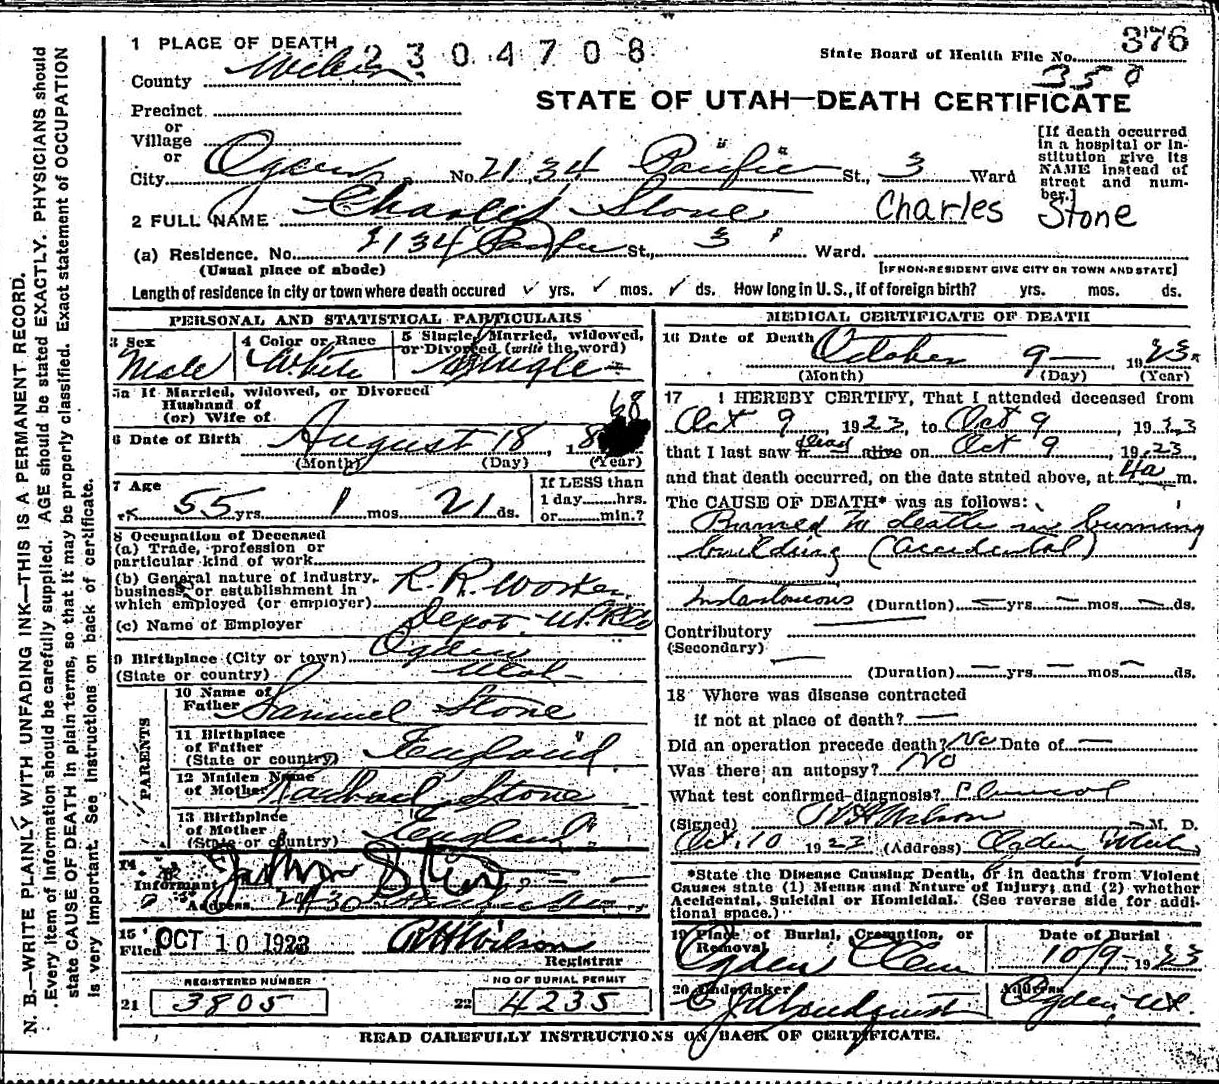 376
1 PLACE OF DEATH
2304708
State Board of Health File No.
350
County Weber
STATE OF UTAH—DEATH CERTIFICATE
Precinct
or
Village
or
City Ogden No. 2134 Pacific St., 3 Ward
[If death occurred in a hospital or institution give its NAME instead of street and number.]
2 FULL NAME Charles Stone Charles Stone
(a) Residence. No. 2134 Pacific St., 3 Ward.
(Usual place of abode) [IF NON-RESIDENT GIVE CITY OR TOWN AND STATE]
Length of residence in city or town where death occured ✓ yrs. ✓ mos. ✓ ds. How long in U. S., if of foreign birth? yrs. mos. ds.
PERSONAL AND STATISTICAL PARTICULARS
3 Sex Male
4 Color or Race White
5 Single, Married, widowed, or Divorced (write the word) Single
5a If Married, widowed, or Divorced
Husband of
(or) Wife of
6 Date of Birth August 18, 18 68
(Month) (Day) (Year)
7 Age 55 yrs. 1 mos. 21 ds.
If LESS than
1 day hrs.
or min.?
8 Occupation of Deceased
(a) Trade, profession or
particular kind of work
(b) General nature of industry,
business, or establishment in
which employed (or employer) R. R. Worker
(c) Name of Employer Depot
9 Birthplace (City or town) Ogden
(State or country) Utah
PARENTS
10 Name of Father Samuel Stone
11 Birthplace of Father (State or country) England
12 Maiden Name of Mother Stone
13 Birthplace of Mother (State or country) England
14
Informant
Address
15 Filed OCT 10 1923 R H Wilson
Registrar
REGISTERED NUMBER
21 3805
NO OF BURIAL PERMIT
22 4235
MEDICAL CERTIFICATE OF DEATH
16 Date of Death October 9 1923
(Month) (Day) (Year)
17 I HEREBY CERTIFY, That I attended deceased from
Oct 9, 1923, to Oct 9, 1923
that I last saw h dead alive on Oct 9, 1923,
and that death occurred, on the date stated above, at 4a m.
The CAUSE OF DEATH* was as follows:
Burned to death in burning
building (accidental)
Instantaneous (Duration) — yrs. — mos. — ds.
Contributory
(Secondary)
(Duration) — yrs. — mos. — ds.
18 Where was disease contracted
if not at place of death? —
Did an operation precede death? No Date of —
Was there an autopsy? No
What test confirmed diagnosis? Clinical
(Signed) R H Wilson M. D.
Oct. 10 1923 (Address) Ogden, Utah
*State the Disease Causing Death, or in deaths from Violent
Causes state (1) Means and Nature of Injury; and (2) whether
Accidental, Suicidal or Homicidal. (See reverse side for addi-
tional space.)
19 Place of Burial, Cremation, or Removal Ogden Cem
Date of Burial 10/9-1923
20 Undertaker
Address Ogden, Ut.
READ CAREFULLY INSTRUCTIONS ON BACK OF CERTIFICATE.
N. B.—WRITE PLAINLY WITH UNFADING INK—THIS IS A PERMANENT RECORD.
Every item of information should be carefully supplied. AGE should be stated EXACTLY. PHYSICIANS should
state CAUSE OF DEATH in plain terms, so that it may be properly classified. Exact statement of OCCUPATION
is very important. See instructions on back of certificate.